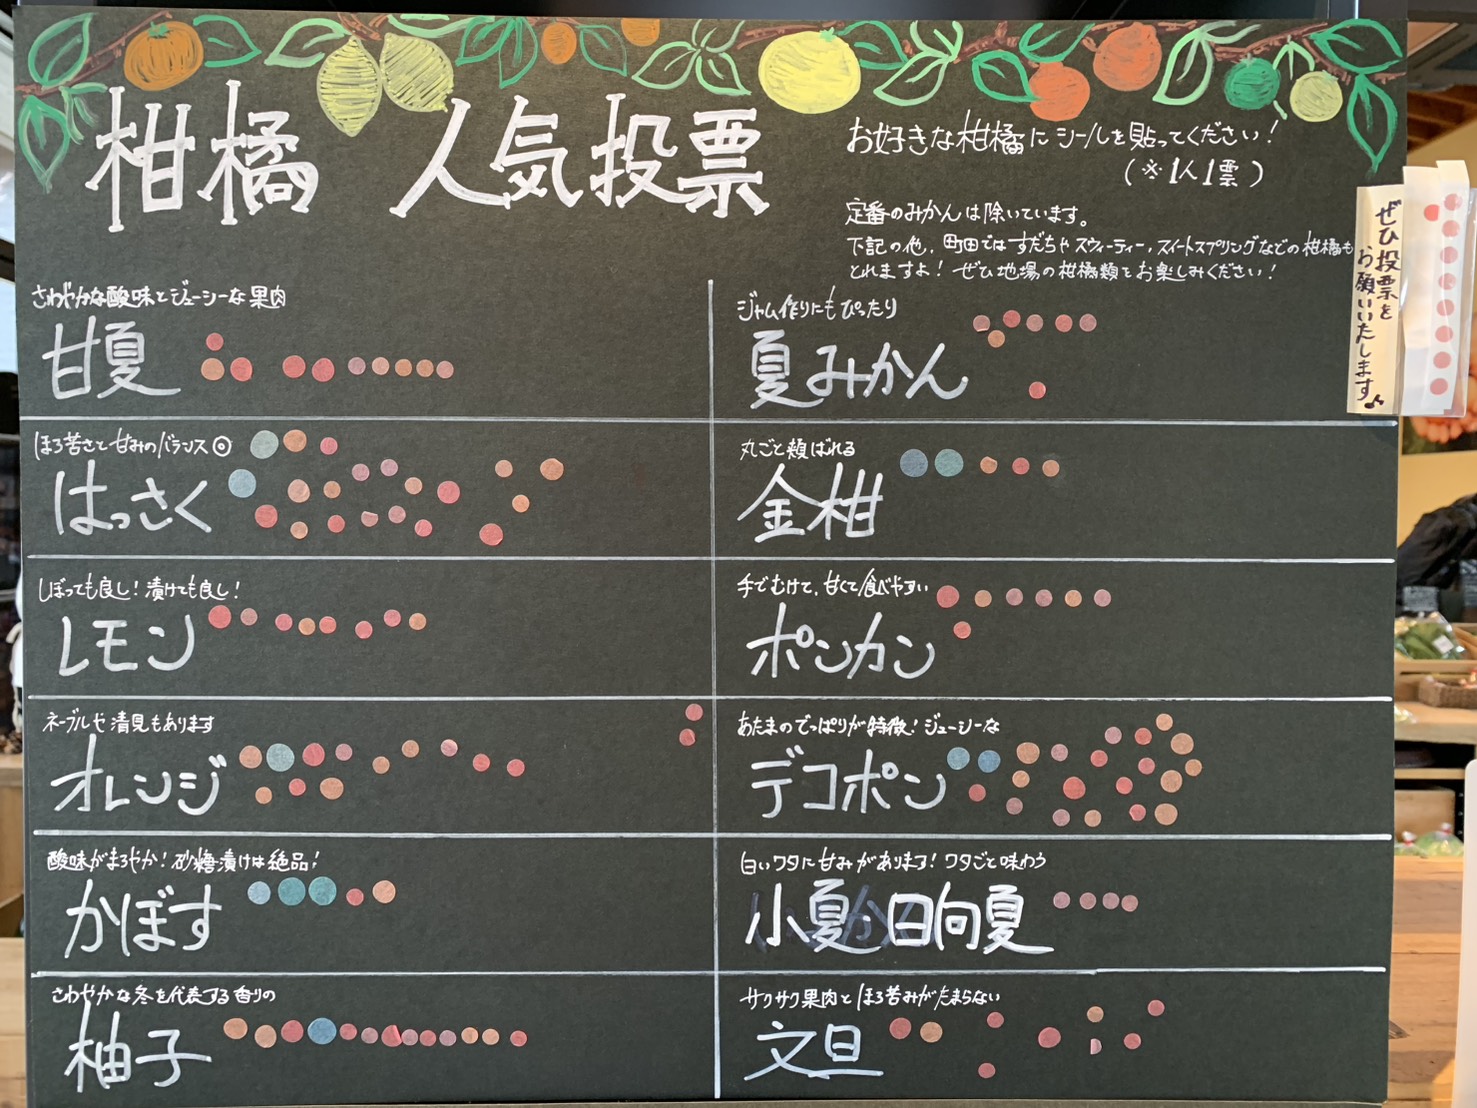 柑橘 人気投票
お好きな柑橘にシールを貼ってください!
(※1人1票)
定番のみかんは除いています。
下記の他、町田ではすだちやスウィーティー、スイートスプリングなどの柑橘も
とれますよ! ぜひ地場の柑橘類をお楽しみください!
ぜひ投票を
お願いいたします♪
さわやかな酸味とジューシーな果肉
甘夏
ジャム作りにもぴったり
夏みかん
ほろ苦さと甘みのバランス◎
はっさく
丸ごと頬ばれる
金柑
しぼっても良し!漬けても良し!
レモン
手でむけて、甘くて食べやすい
ポンカン
ネーブルや清見もあります
オレンジ
あたまのでっぱりが特徴!ジューシーな
デコポン
酸味がまろやか!砂糖漬けは絶品!
かぼす
白いワタに甘みがあります!ワタごと味わう
小夏・日向夏
さわやかな冬を代表する香りの
柚子
サクサク果肉とほろ苦みがたまらない
文旦